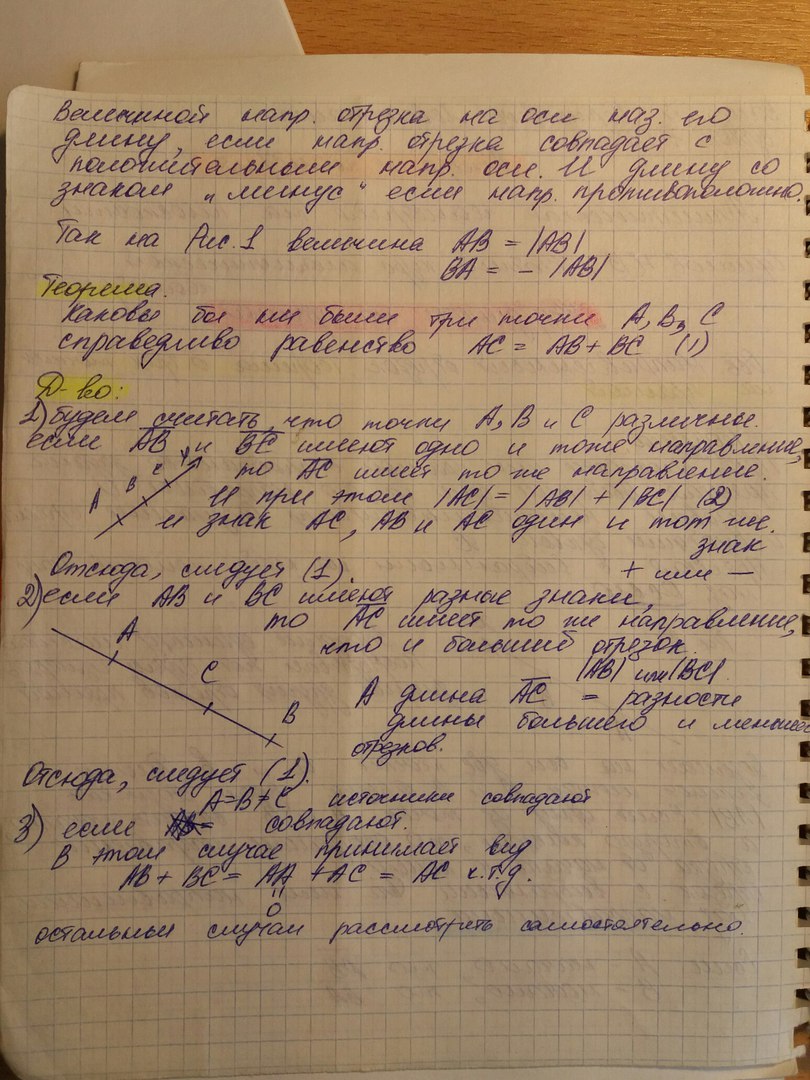 Величиной напр. отрезка на оси наз. его
длину, если напр. отрезка совпадает с
положительным напр. оси. И длину со
знаком „минус“ если напр. противоположно.
Так на Рис. 1 величина AB = |AB|
BA = - |AB|
Теорема.
Каковы бы ни были три точки A, B, C
справедливо равенство AC = AB + BC (1)
Д-во:
1) будем считать, что точки A, B и C различные.
если AB и BC имеют одно и тоже направление,
то AC имеет то же направление.
A B C
И при этом |AC| = |AB| + |BC| (2)
и знак AC, AB и AC один и тот же.
знак
+ или —
Отсюда, следует (1).
2) если AB и BC имеют разные знаки,
то AC имеет то же направление,
что и больший отрезок.
|AB| или |BC|.
A
C
B
А длина AC = разности
длины большего и меньшего
отрезков.
Отсюда, следует (1).
A=B≠C источники совпадают
3) если совпадают.
В этом случае принимает вид
AB + BC = AA + AC = AC ч.т.д.
0
остальные случаи рассмотреть самостоятельно.